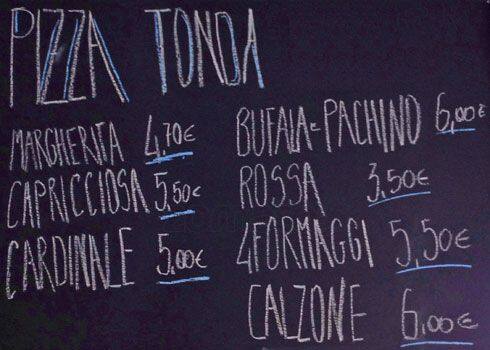 PIZZA TONDA
MARGHERITA 4,70€
CAPRICCIOSA 5,50€
CARDINALE 5,00€
BUFALA e PACHINO 6,00€
ROSSA 3,50€
4FORMAGGI 5,50€
CALZONE 6,00€